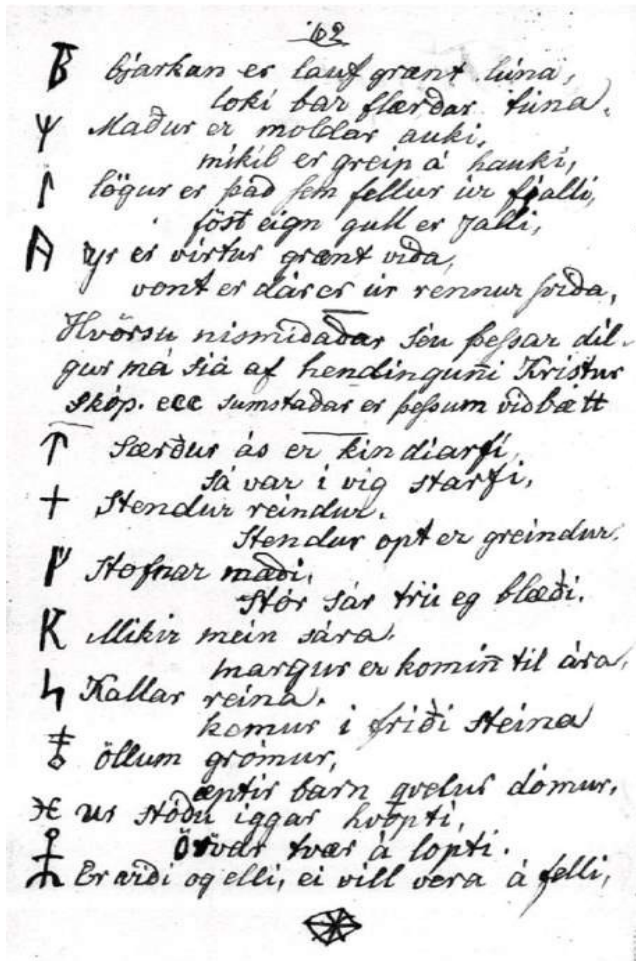 62
ᛒ bjarkan er lauf grænt líma,
loki bar flærðar túna.
ᛘ Maður er moldar auki,
mikil er greip á hauki,
ᛚ lögur er það sem fellur úr fjalli,
föst eign gull er Jalli,
yr er virtur grænt viða,
vont er dárer úr rennur sviða,
Hvörsu nismidaðar séu þessar dil-
gur má siá af hendinguni Kristur
skóp. ccc sumstaðar er þessum viðbætt
ᛏ Særður ás er kindiarfi,
sá var i víg starfi,
Stendur reindur,
Stendur opt er greindur.
ᚠ Stofnar mæði,
Stór sár trú eg blæði.
K Mikir mein sára,
margur er komin̄ til ára,
ᛋ Kallar reina,
kemur i friði steina
öllum grómur,
æptir barn qvelur dómur,
ur stóðu iggar hvopti,
örvar tvær á lopti.
Er æði og elli, ei vill vera á felli,